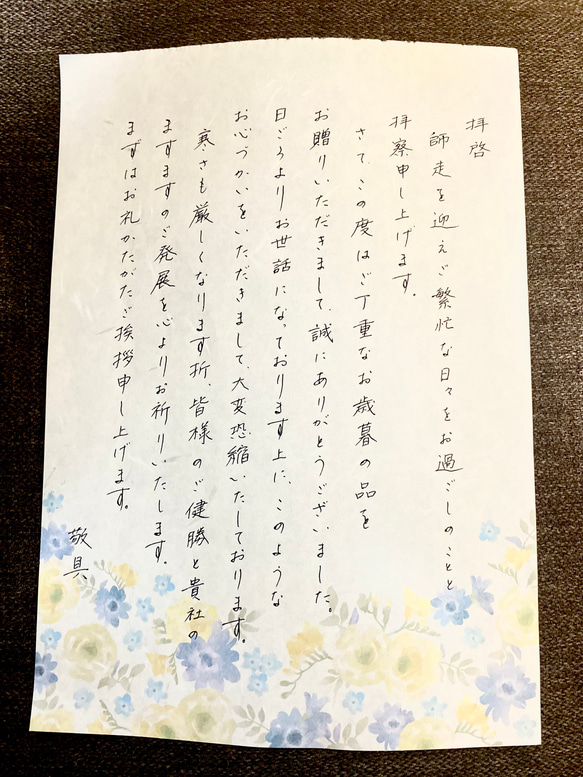 拝啓
師走を迎えご繁忙な日々をお過ごしのことと
拝察申し上げます。
さて、この度はご丁重なお歳暮の品を
お贈りいただきまして、誠にありがとうございました。
日ごろよりお世話になっております上に、このような
お心づかいをいただきまして、大変恐縮いたしております。
寒さも厳しくなります折、皆様のご健勝と貴社の
ますますのご発展を心よりお祈りいたします。
まずはお礼かたがたご挨拶申し上げます。
敬具